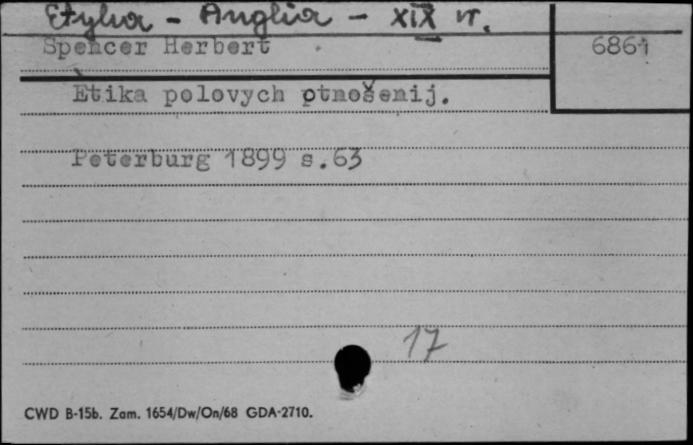 Etyka - Anglia - XIX w.
Spencer Herbert
6861
Ètika polovych otnošenij.
Peterburg 1899 s.63
17
CWD B-15b. Zam. 1654/Dw/On/68 GDA-2710.